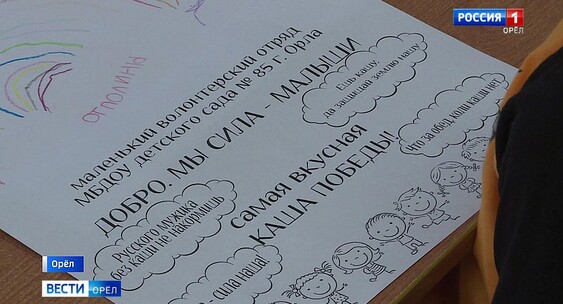 РОССИЯ 1
ОРЁЛ
отполины
маленький волонтерский отряд
МБДОУ детского сада № 85 г. Орла
ДОБРО. МЫ СИЛА - МАЛЫШИ
самая вкусная
КАША ПОБЕДЫ!
Ешь кашу,
да защищай землю нашу
Что за обед, коли каши нет?
Русского мужика
без каши не накормишь
- сила наша!
Орёл
ВЕСТИ ОРЁЛ